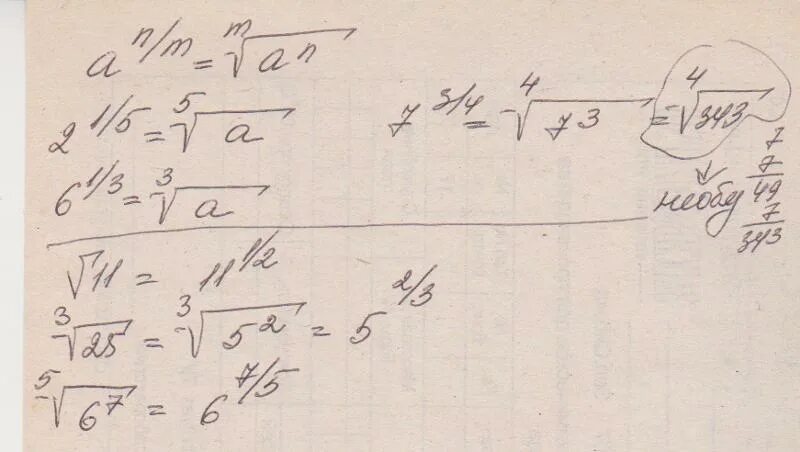 a^n/m = ᵐ√aⁿ
2^1/5 = ⁵√a
7^3/4 = ⁴√7³ = ⁴√343
6^1/3 = ³√a
необу
7
7
49
7
343
√11 = 11^1/2
³√25 = ³√5² = 5^2/3
⁵√6⁷ = 6^7/5